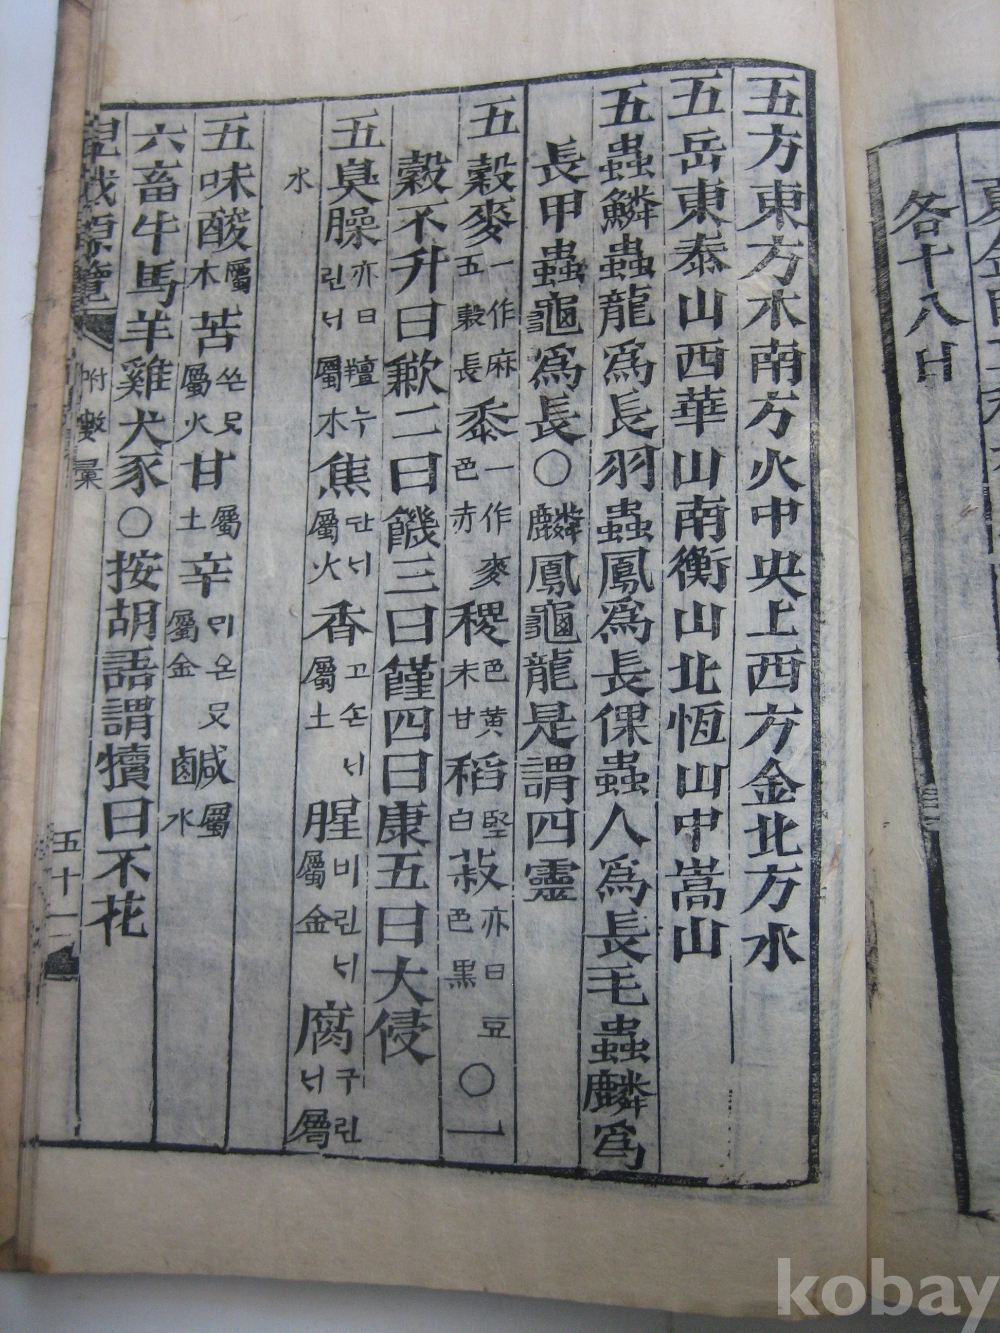 各十八日
五方東方木南方火中央土西方金北方水
五岳東泰山西華山南衡山北恆山中嵩山
五蟲鱗蟲龍爲長羽蟲鳳爲長倮蟲人爲長毛蟲麟爲
長甲蟲龜爲長○麟鳳龜龍是謂四靈
五穀麥一作麻五穀長黍一作麥色赤稷色黃末甘稻堅白菽亦曰豆色黑○一
穀不升曰歉二曰饑三曰饉四曰康五曰大侵
五臭臊亦曰羶누린너屬木焦단너屬火香고손너屬土腥비린너屬金腐구린너屬
水
五味酸屬木苦쓴맛屬火甘屬土辛ᄆᆡ온맛屬金鹹屬水
六畜牛馬羊雞犬豕○按胡語謂犢曰不花
附數彙
五十一
kobay